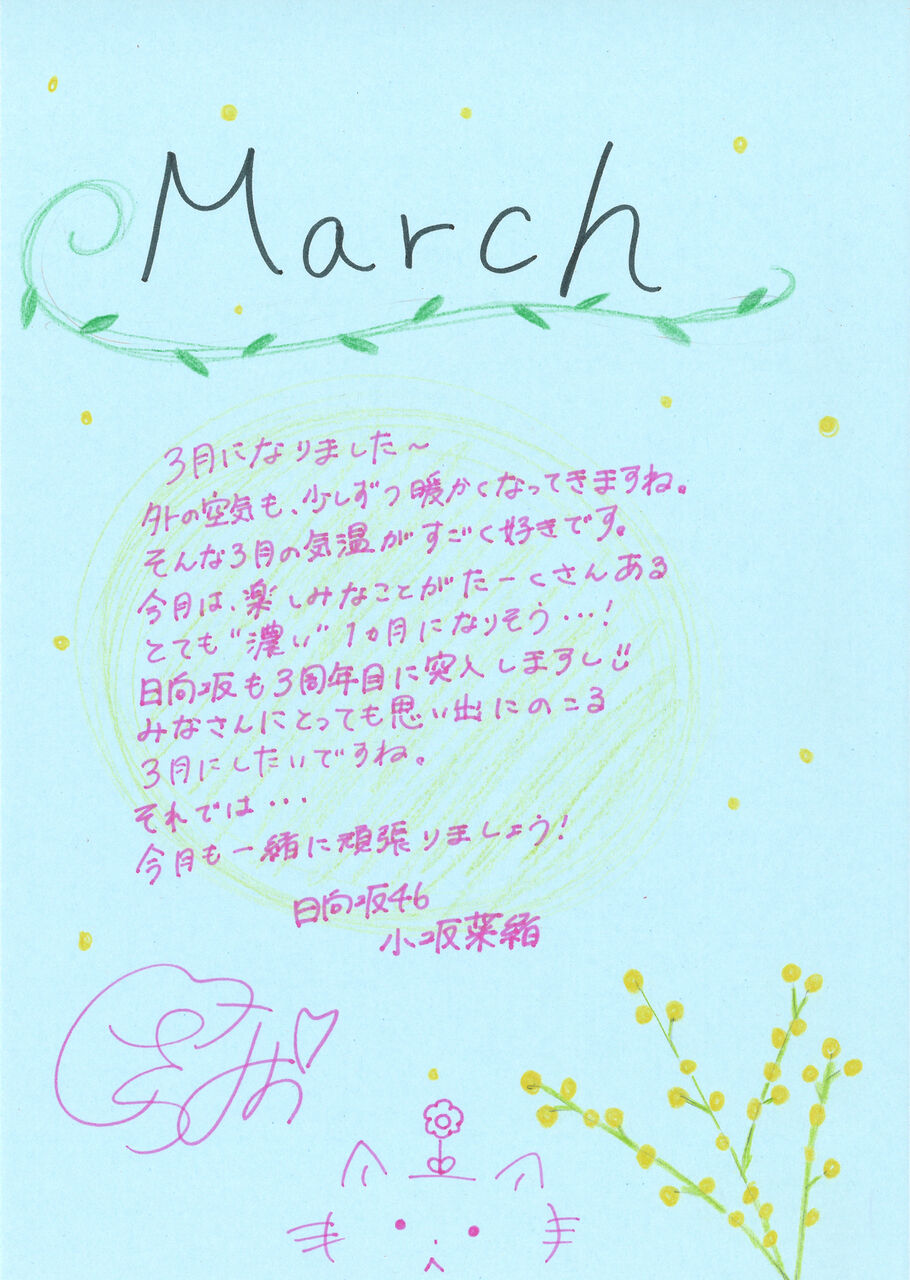 March
3月になりました～
外の空気も、少しずつ暖かくなってきますね。
そんな3月の気温がすごく好きです。
今月は、楽しみなことがたーくさんある
とても"濃い"1ヵ月になりそう…!
日向坂も3周年目に突入しますし
みなさんにとっても思い出にのこる
3月にしたいですね。
それでは…
今月も一緒に頑張りましょう!
日向坂46
小坂菜緒